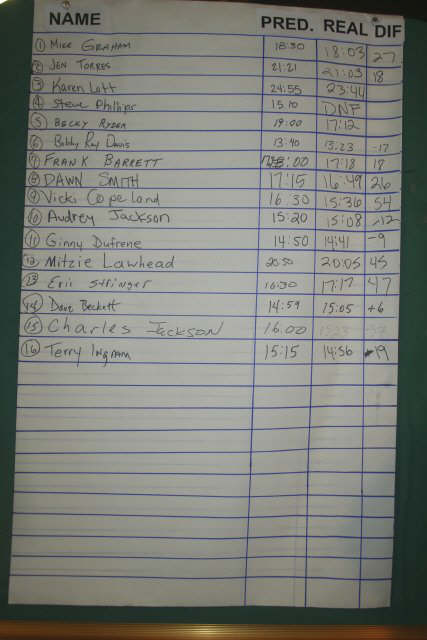 NAME PRED. REAL DIF
1 Mike Graham 18:30 18:03 27
2 Jen Torres 21:21 21:03 18
3 Karen Lott 24:55 23:44
4 Steve Phillips 15:10 DNF
5 Becky Ryder 19:00 17:12
6 Bobby Ray Davis 13:40 13:23 -17
7 Frank Barrett :00 17:18 18
8 Dawn Smith 17:15 16:49 26
9 Vicki Copeland 16:30 15:36 54
10 Audrey Jackson 15:20 15:08 -12
11 Ginny Dufrene 14:50 14:41 -9
12 Mitzie Lawhead 20:50 20:05 45
13 Eric Stringer 16:30 17:17 47
14 Dave Beckett 14:59 15:05 +6
15 Charles Jackson 16.00
16 Terry Ingram 15:15 14:56 -19